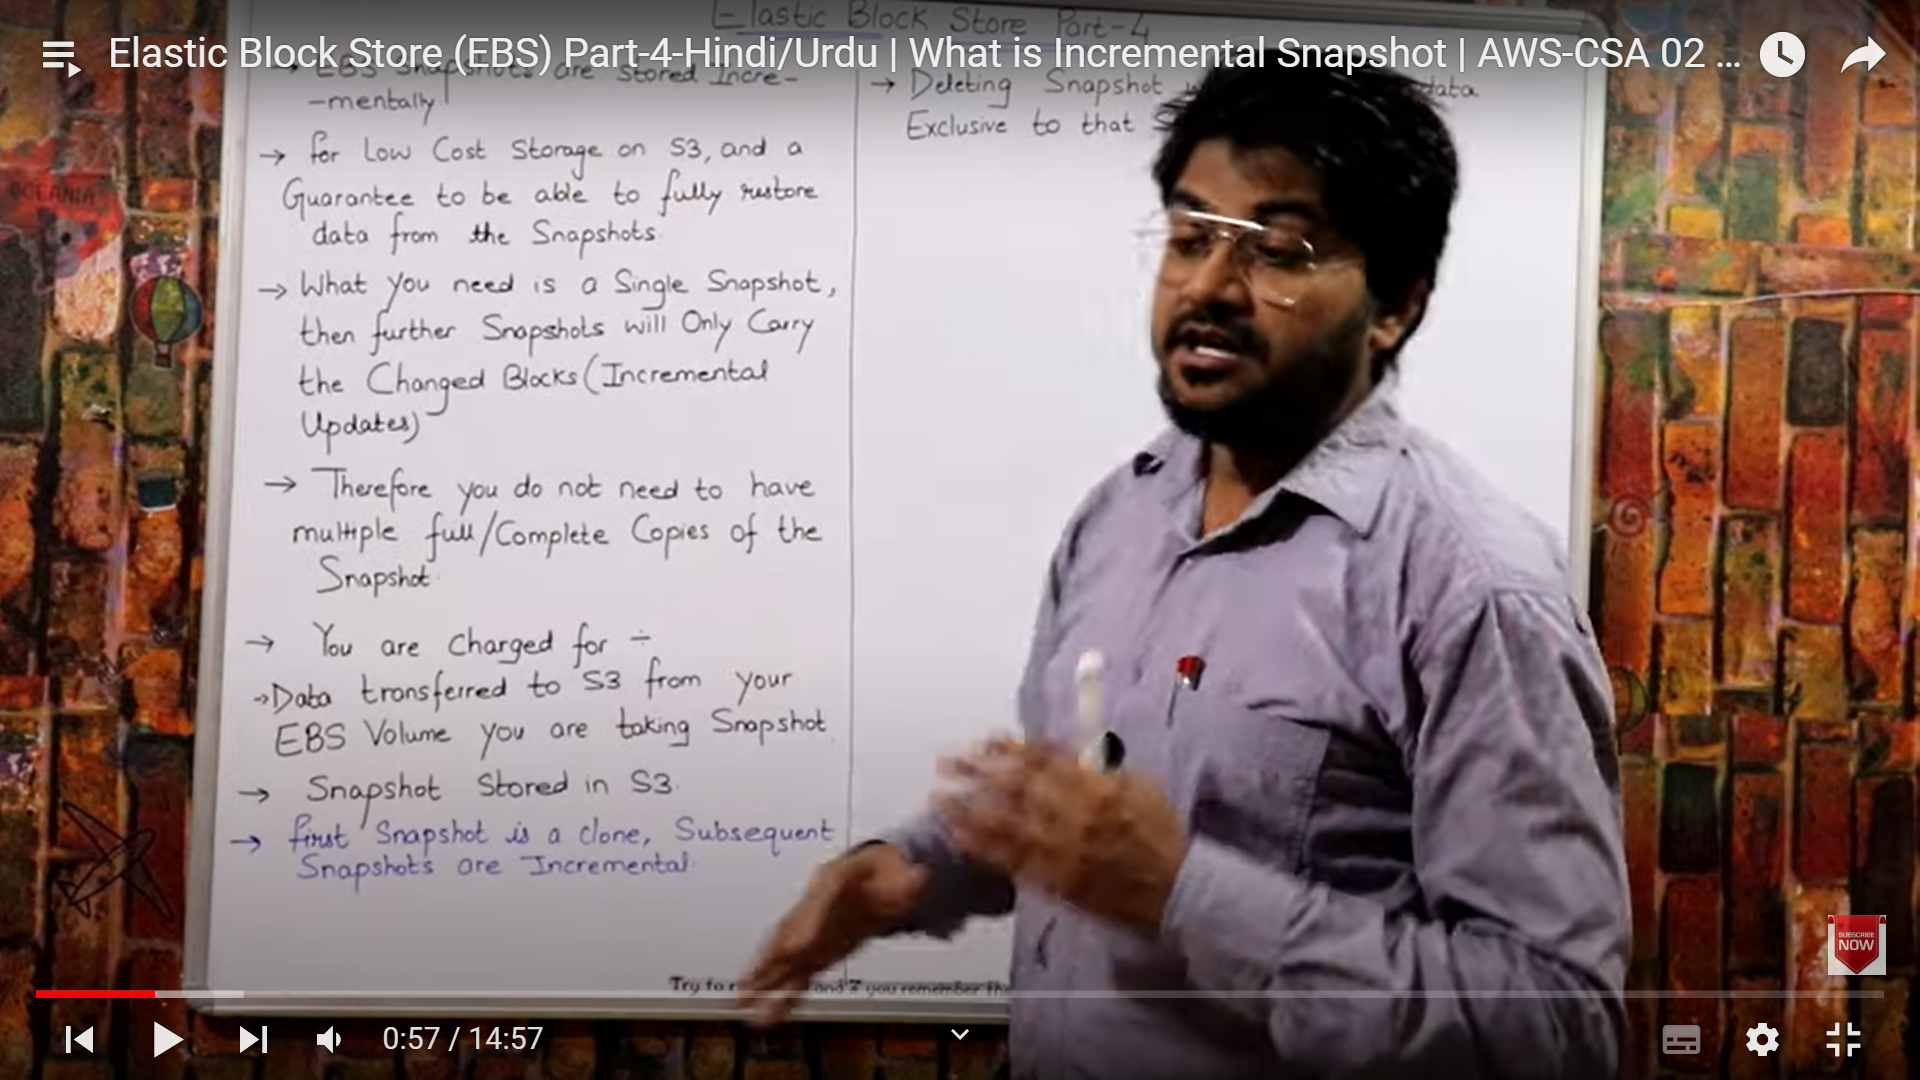 Elastic Block Store Part-4
Elastic Block Store (EBS) Part-4-Hindi/Urdu | What is Incremental Snapshot | AWS-CSA 02 ...
→ EBS Snapshots are stored Incre-
-mentally
→ for Low Cost Storage on S3, and a
Guarantee to be able to fully restore
data from the Snapshots.
→ What you need is a Single Snapshot,
then further Snapshots will Only Carry
the Changed Blocks (Incremental
Updates)
→ Therefore you do not need to have
multiple full/Complete Copies of the
Snapshot.
→ You are Charged for ÷
→ Data transferred to S3 from your
EBS Volume you are taking Snapshot.
→ Snapshot Stored in S3.
→ first Snapshot is a clone, Subsequent
Snapshots are Incremental.
→ Deleting Snapshot data
Exclusive to that
OCEANIA
Try to and 2 you remember
SUBSCRIBE
NOW
0:57 / 14:57